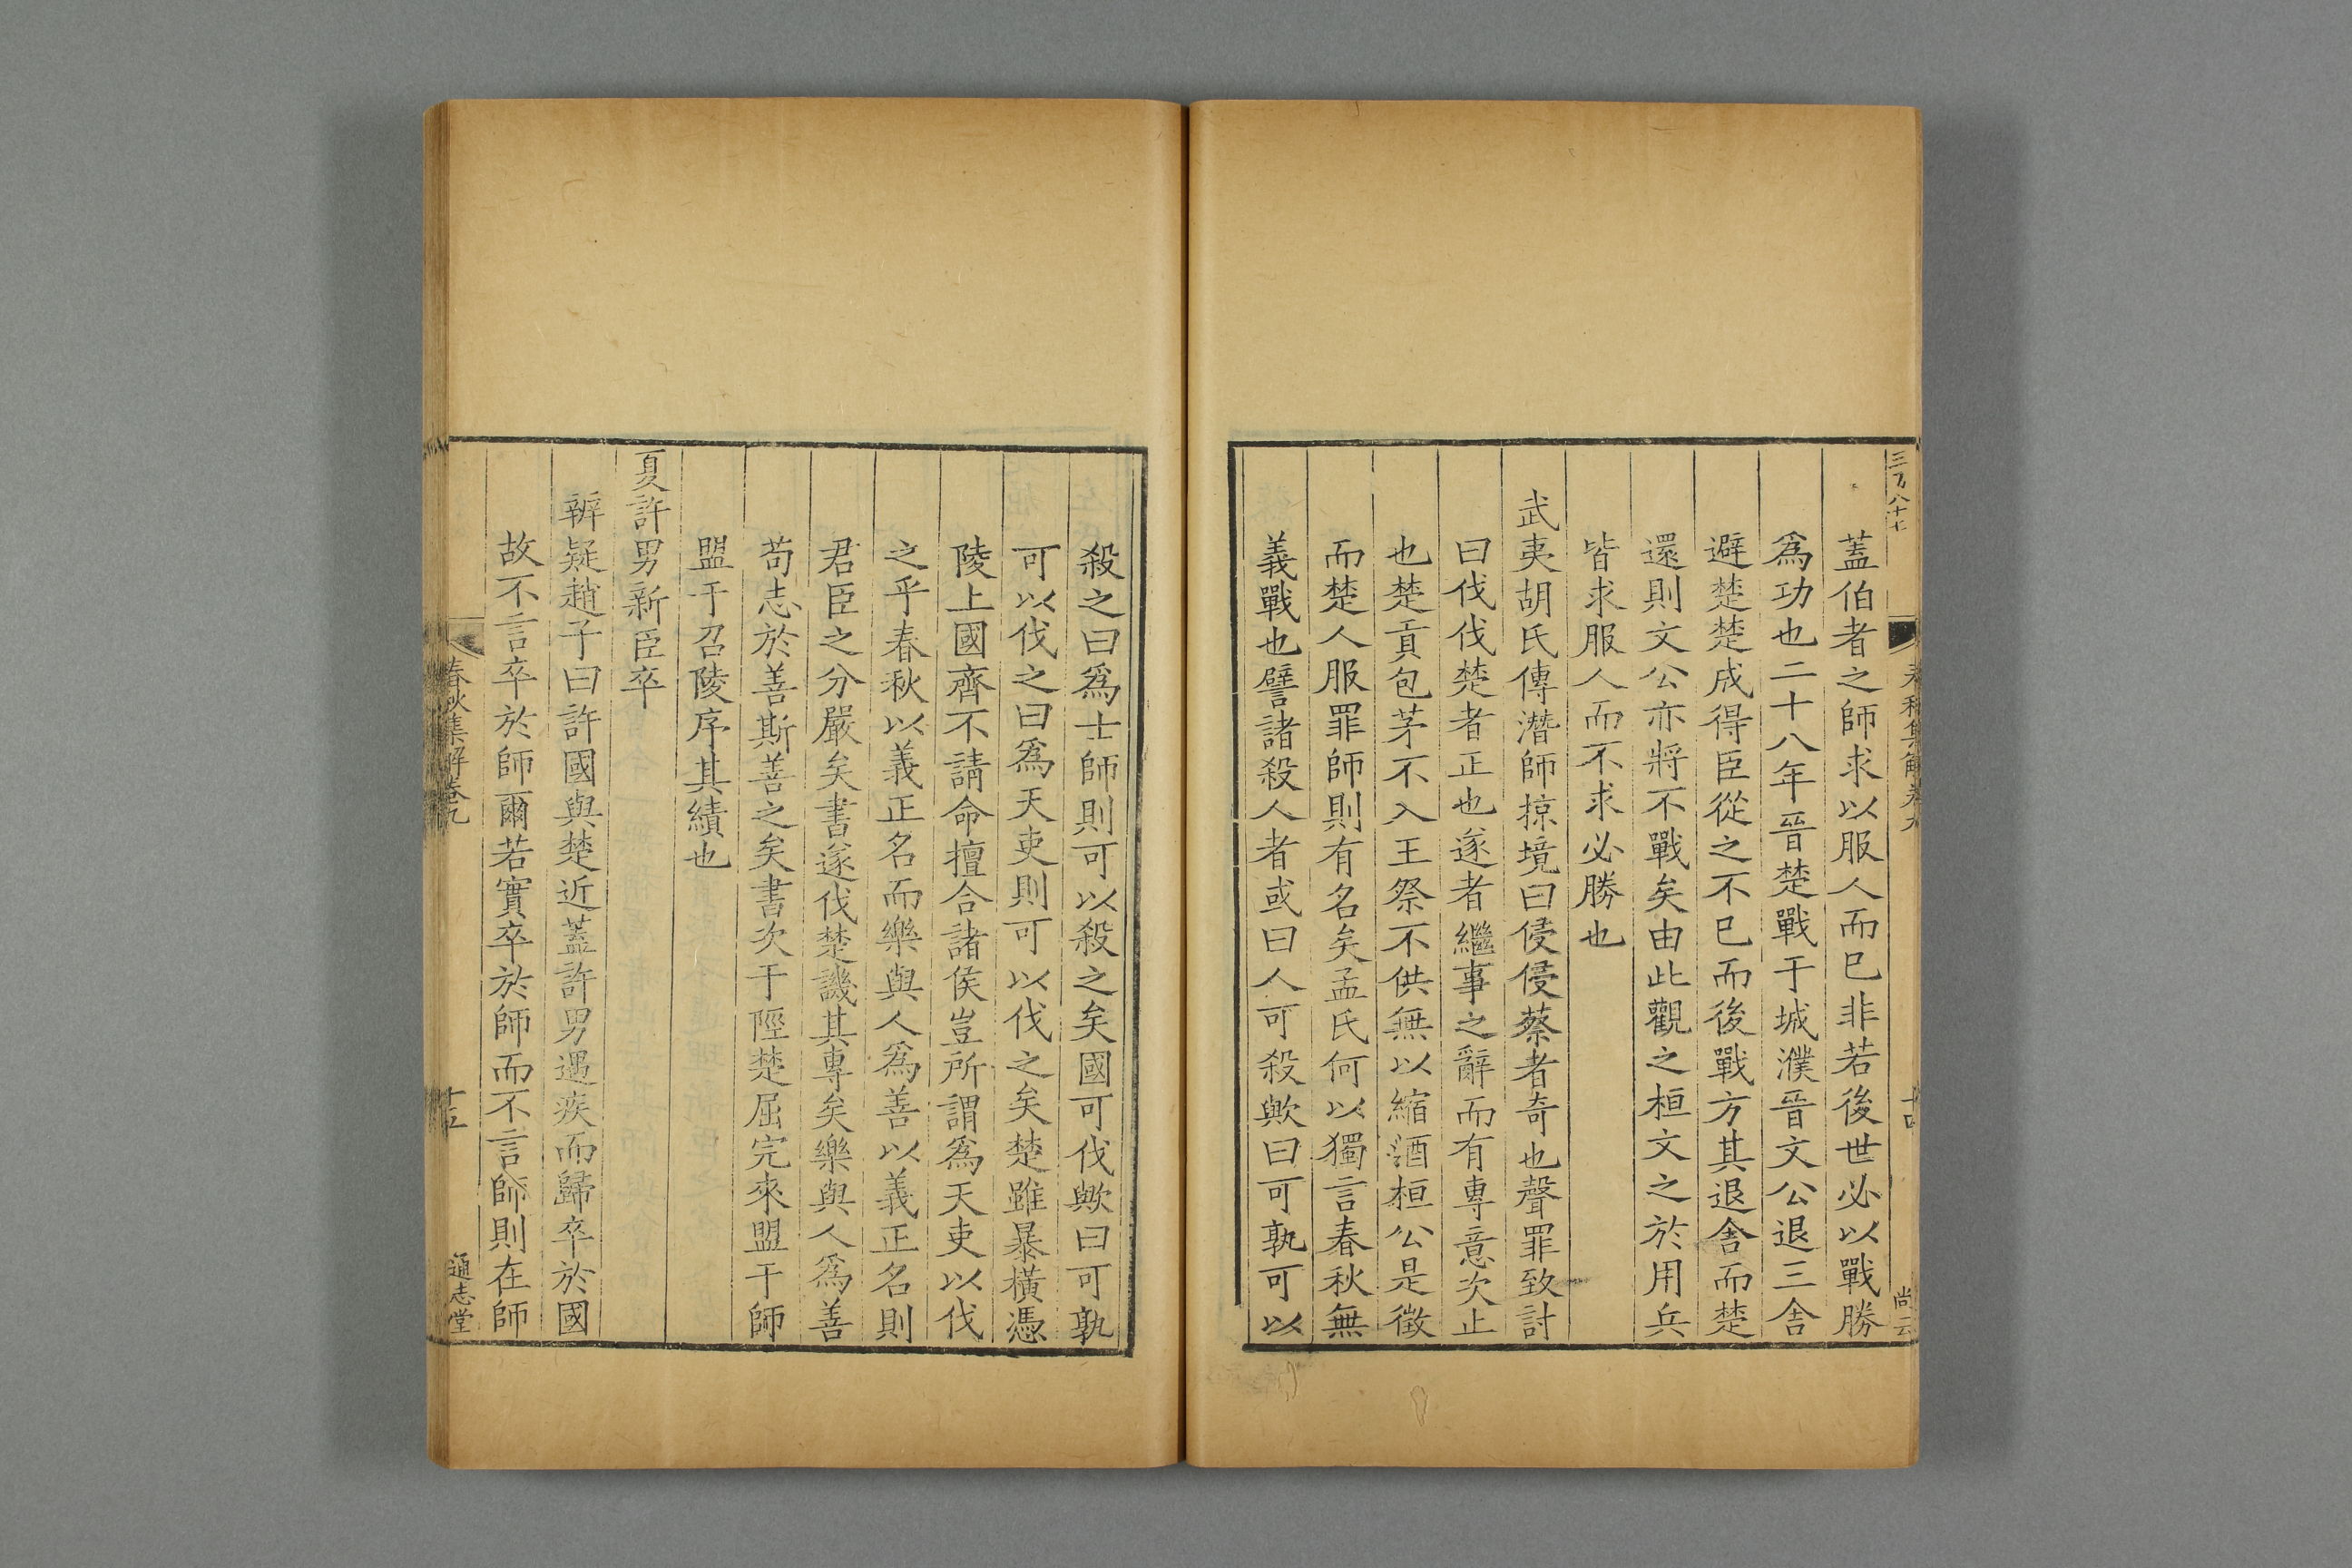 三百八十七
春秋集解卷九
十四
尚云
蓋伯者之師求以服人而巳非若後世必以戰勝
爲功也二十八年晉楚戰于城濮晉文公退三舍
避楚楚成得臣從之不巳而後戰方其退舍而楚
還則文公亦將不戰矣由此觀之桓文之於用兵
皆求服人而不求必勝也
武夷胡氏傳潛師掠境曰侵侵蔡者奇也聲罪致討
曰伐伐楚者正也遂者繼事之辭而有專意次止
也楚貢包茅不入王祭不供無以縮酒桓公是徵
而楚人服罪師則有名矣孟氏何以獨言春秋無
義戰也譬諸殺人者或曰人可殺歟曰可孰可以
殺之曰爲士師則可以殺之矣國可伐歟曰可孰
可以伐之曰爲天吏則可以伐之矣楚雖暴橫憑
陵上國齊不請命擅合諸侯豈所謂爲天吏以伐
之乎春秋以義正名而樂與人爲善以義正名則
君臣之分嚴矣書遂伐楚譏其專矣樂與人爲善
苟志於善斯善之矣書次于陘楚屈完來盟于師
盟于召陵序其績也
夏許男新臣卒
辨疑趙子曰許國與楚近蓋許男遇疾而歸卒於國
故不言卒於師爾若實卒於師而不言師則在師
春秋集解卷九
十五
通志堂